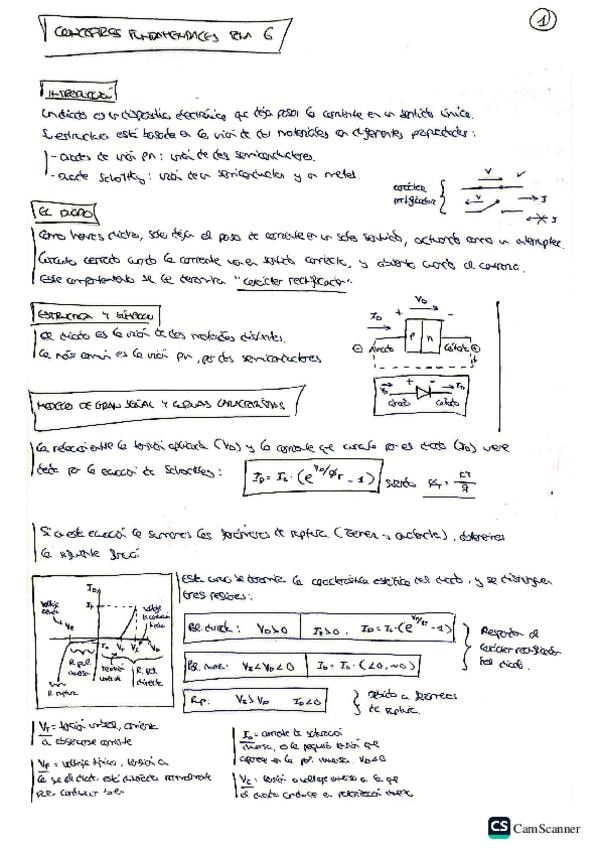 1
CONCEPTOS FUNDAMENTALES TEMA 6
INTRODUCCIÓN
Un diodo es un dispositivo electrónico que deja pasar la corriente en un sentido único.
Su estructura está basada en la unión de dos materiales con diferentes propiedades:
- diodos de unión pn: unión de dos semiconductores.
- diodo Schottky: unión de un semiconductor y un metal
carácter
rectificador
V
I
EL DIODO
Como hemos dicho, solo dejan el paso de corriente en un solo sentido, actuando como un interruptor.
Circuito cerrado cuando la corriente va en sentido correcto, y abierto cuando al contrario.
Este comportamiento se le denomina "carácter rectificador".
ESTRUCTURA Y SÍMBOLO
El diodo es la unión de dos materiales distintos.
La más común es la unión pn, por dos semiconductores
+ VD -
ID
P n
ánodo cátodo
+ -
VD ID
ánodo cátodo
MODELO DE GRAN SEÑAL Y CURVAS CARACTERÍSTICAS
La relación entre la tensión aplicada (VD) y la corriente que circula por el diodo (ID) viene
dada por la ecuación de Schockley: ID = Io · (e^VD/ϕT - 1) siendo ϕT = KT/q
Si a esta ecuación le sumamos los fenómenos de ruptura (Zener y avalancha), obtenemos
la siguiente gráfica
Esta curva se denomina la característica estática del diodo, y se distinguen
tres regiones:
ID
IF
VZ Io Vγ VF VD
R. pol. inversa
tensión umbral
R. pol. directa
R. ruptura
R. directa: VD>0 ID>0. ID = Io·(e^VD/ϕT - 1)
VZ<VD<0 ID = Io· (<0, ~0)
Rup: VZ>VD ID<0
Responden al
carácter rectificador
del diodo.
debido a fenómenos
de ruptura.
Vγ = tensión umbral, comienza
a observarse corriente
VF = voltaje típico, tensión a
la que el diodo está diseñado normalmente
para conducir bien
Io = corriente de saturación
inversa, es la pequeña tensión que
aparece en la pol. inversa VD<0
VZ = tensión o voltaje inverso a la que
el diodo conduce en polarización inversa
CS CamScanner